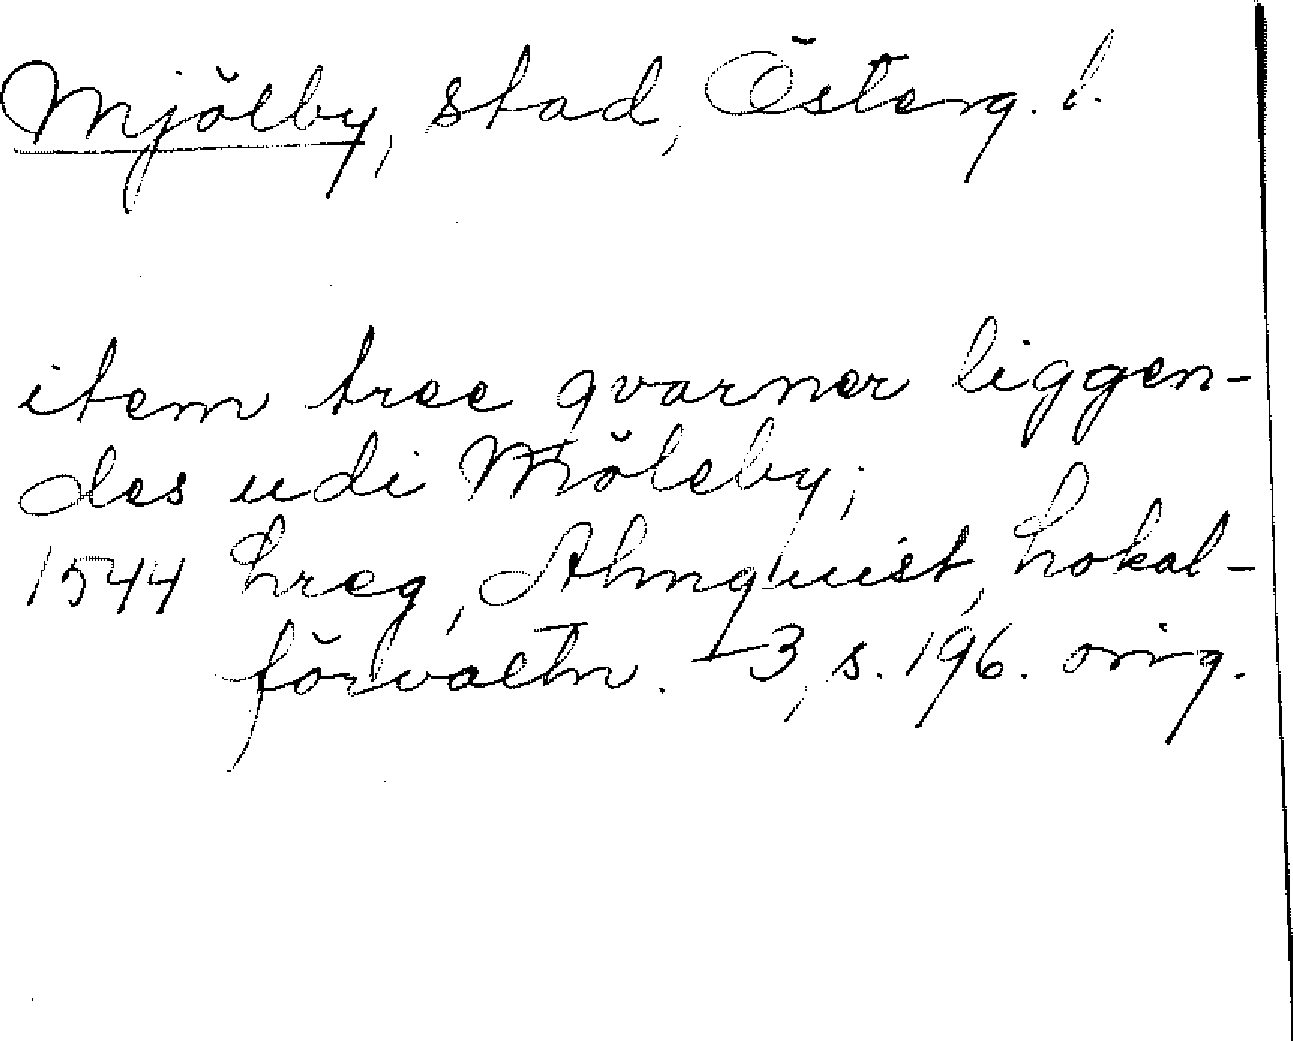 Mjölby, stad, Österg. l.
item tree qvarner liggen-
des udi Miöleby;
1544 Lreg, Almquist, Lokal-
förvaltn. I 3, s. 196. orig.